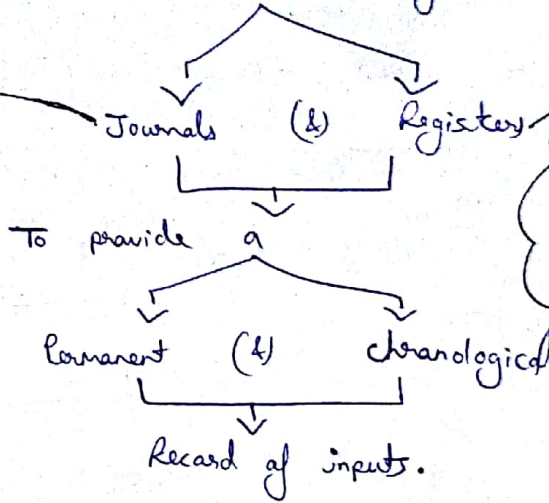 Journals (&) Registers
To provide a
Permanent (&) chronological
Record of inputs.